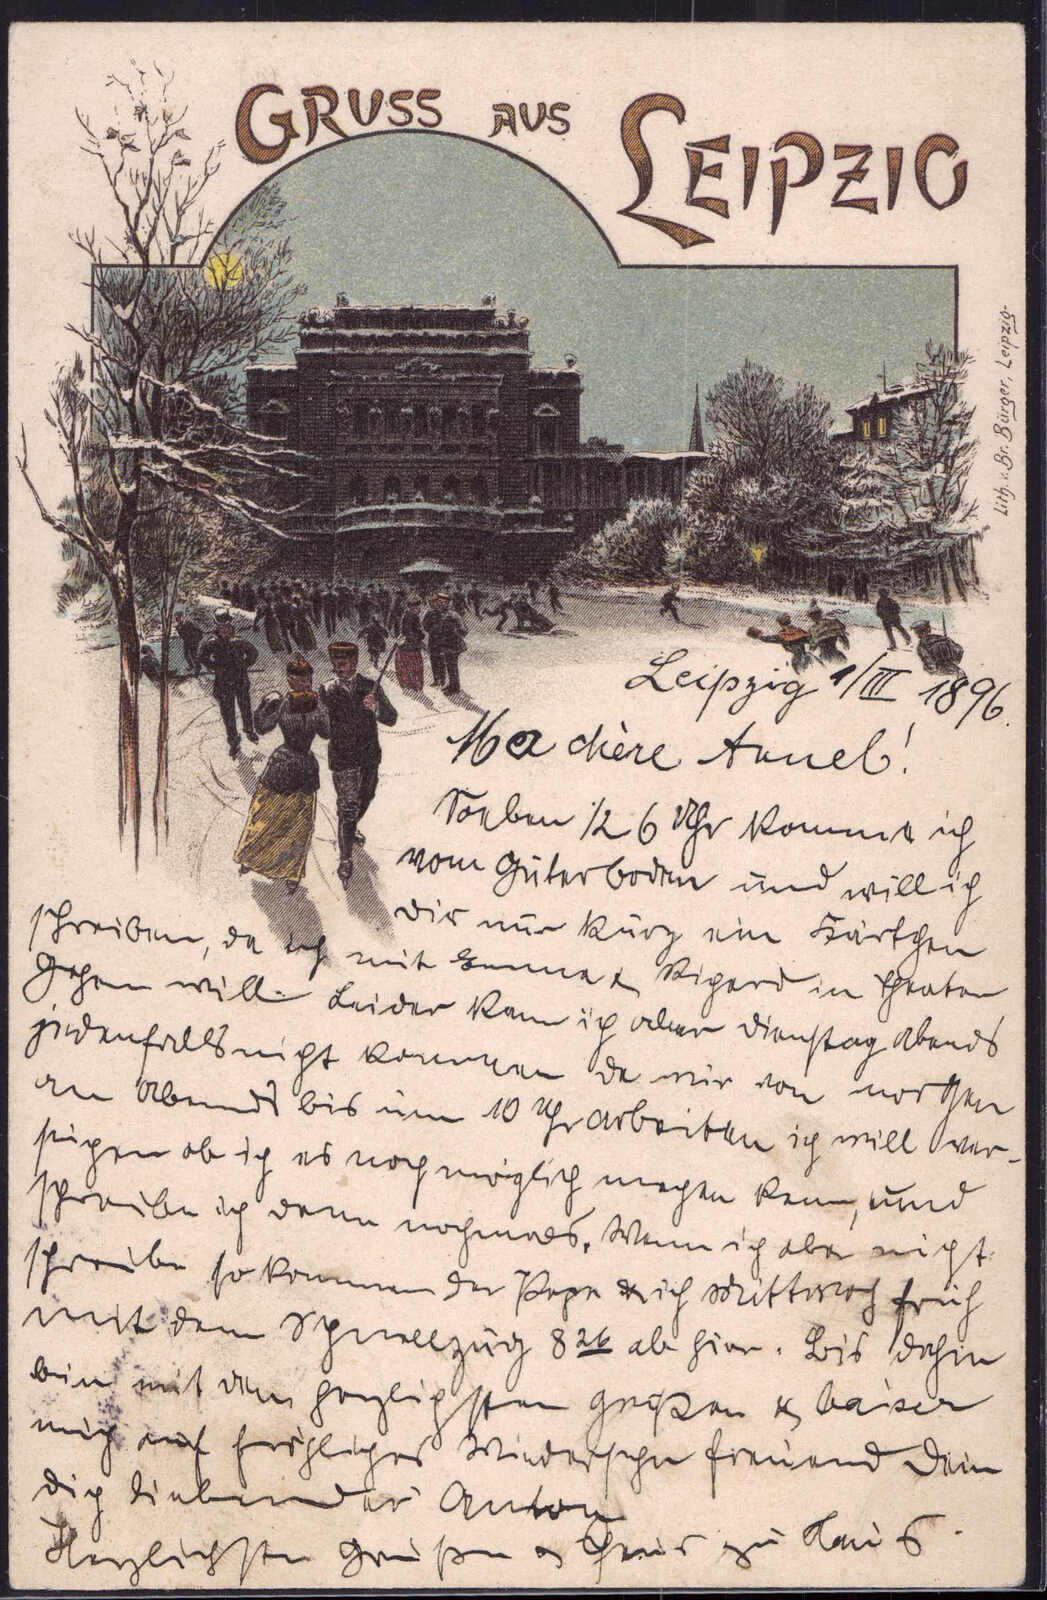 GRUSS AUS LEIPZIG
Lith. v. Br. Bürger, Leipzig.
Leipzig 1/III 1896.
Ma chère Annel!
Soeben 1/2 6 Uhr komme ich
vom Güterboden und will ich
dir nur kurz ein Kärtchen
schreiben, da ich mit Emma & Rigard in Theater
gehen will. Leider kann ich aber Dienstag abends
jedenfalls nicht kommen da wir von morgen
an Abends bis um 10 Uhr arbeiten ich will ver-
suchen ob ich es noch möglich machen kann, und
schreibe ich dann nochmals. Wenn ich aber nicht
schreibe so kommen der Papa & ich Mittwoch früh
mit dem Schnellzug 8 26 ab hier. Bis dahin
bin mit den herzlichsten Grüßen & baiser
mich auf fröhliches Wiedersehn freuend Dein
dich liebender Anton
Herzlichste Grüße & zu Haus.